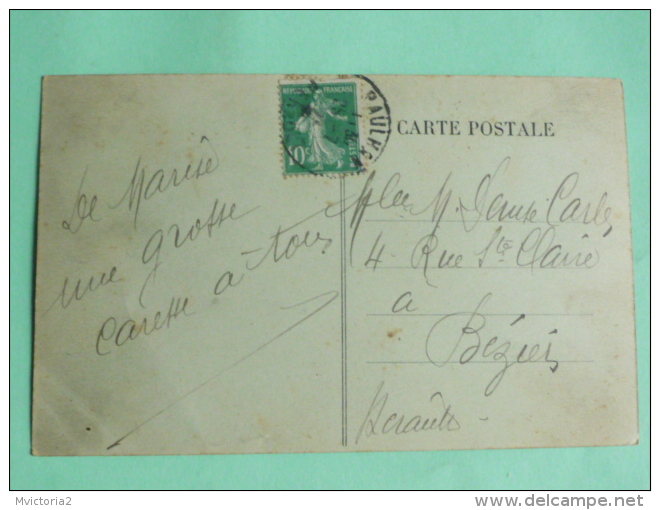 CARTE POSTALE
REPUBLIQUE FRANÇAISE
10c
PAULHAN
De Marie
une grosse
caresse à tous
Mlle M. Denise Carle
4 Rue Ste Claire
à
Béziers
Herault
Mvictoria2
delcampe.net